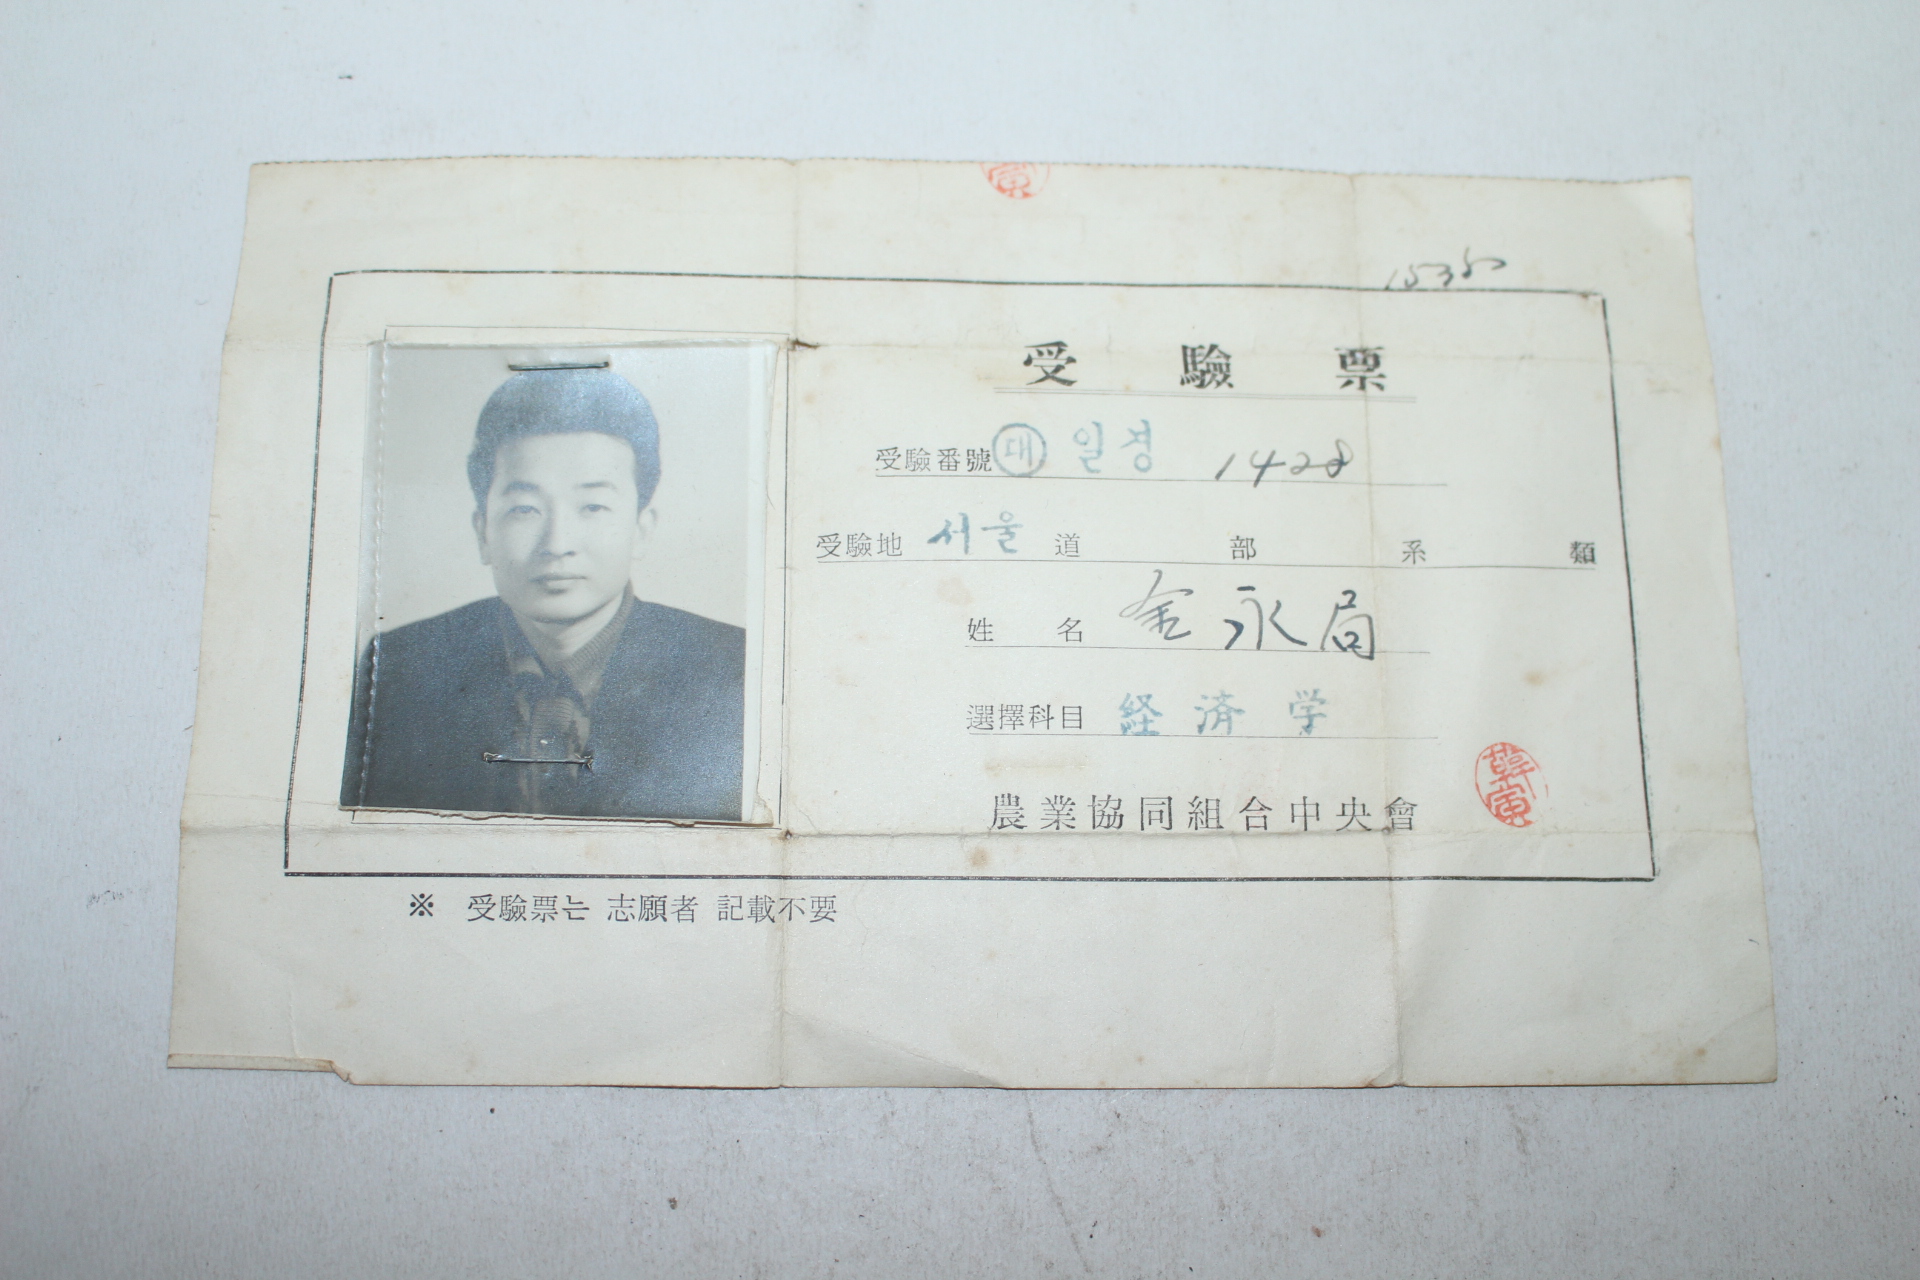 15350
受驗票
受驗番號 대 일경 1428
受驗地 서울 道 部 系 類
姓名 金永局
選擇科目 経済学
農業協同組合中央會
※ 受驗票는 志願者 記載不要